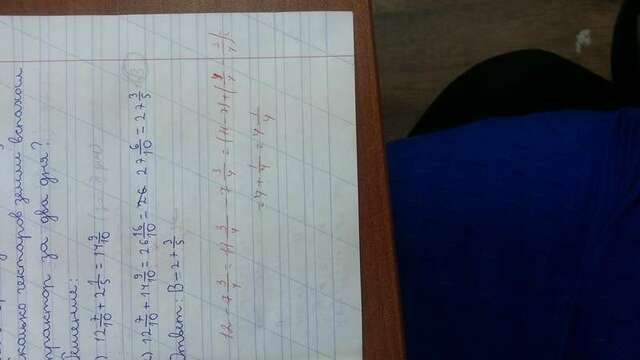 сколько гектаров земли вспахал
трактор за два дня?
Решение:
) 12 7/10 + 2 1/5 = 14 9/10
) 12 7/10 + 14 9/10 = 26 16/10 = 27 6/10 = 27 3/5
Ответ: В – 27 3/5
12 – 7 3/4 = 11 – 7 3/4 = (11-7)+(
= 4 + 1/4 = 4 1/4